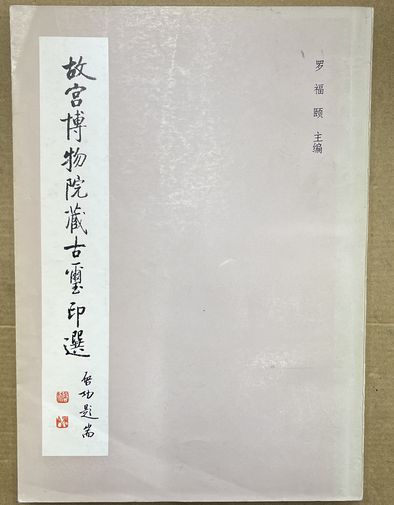 罗福颐 主编
故宫博物院藏古玺印選
启功题耑